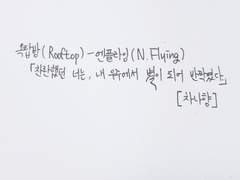 옥탑방(Rooftop) - 엔플라잉(N.Flying)
「찬란했던 너는, 내 우주에서 별이 되어 반짝였다」
[차니향]